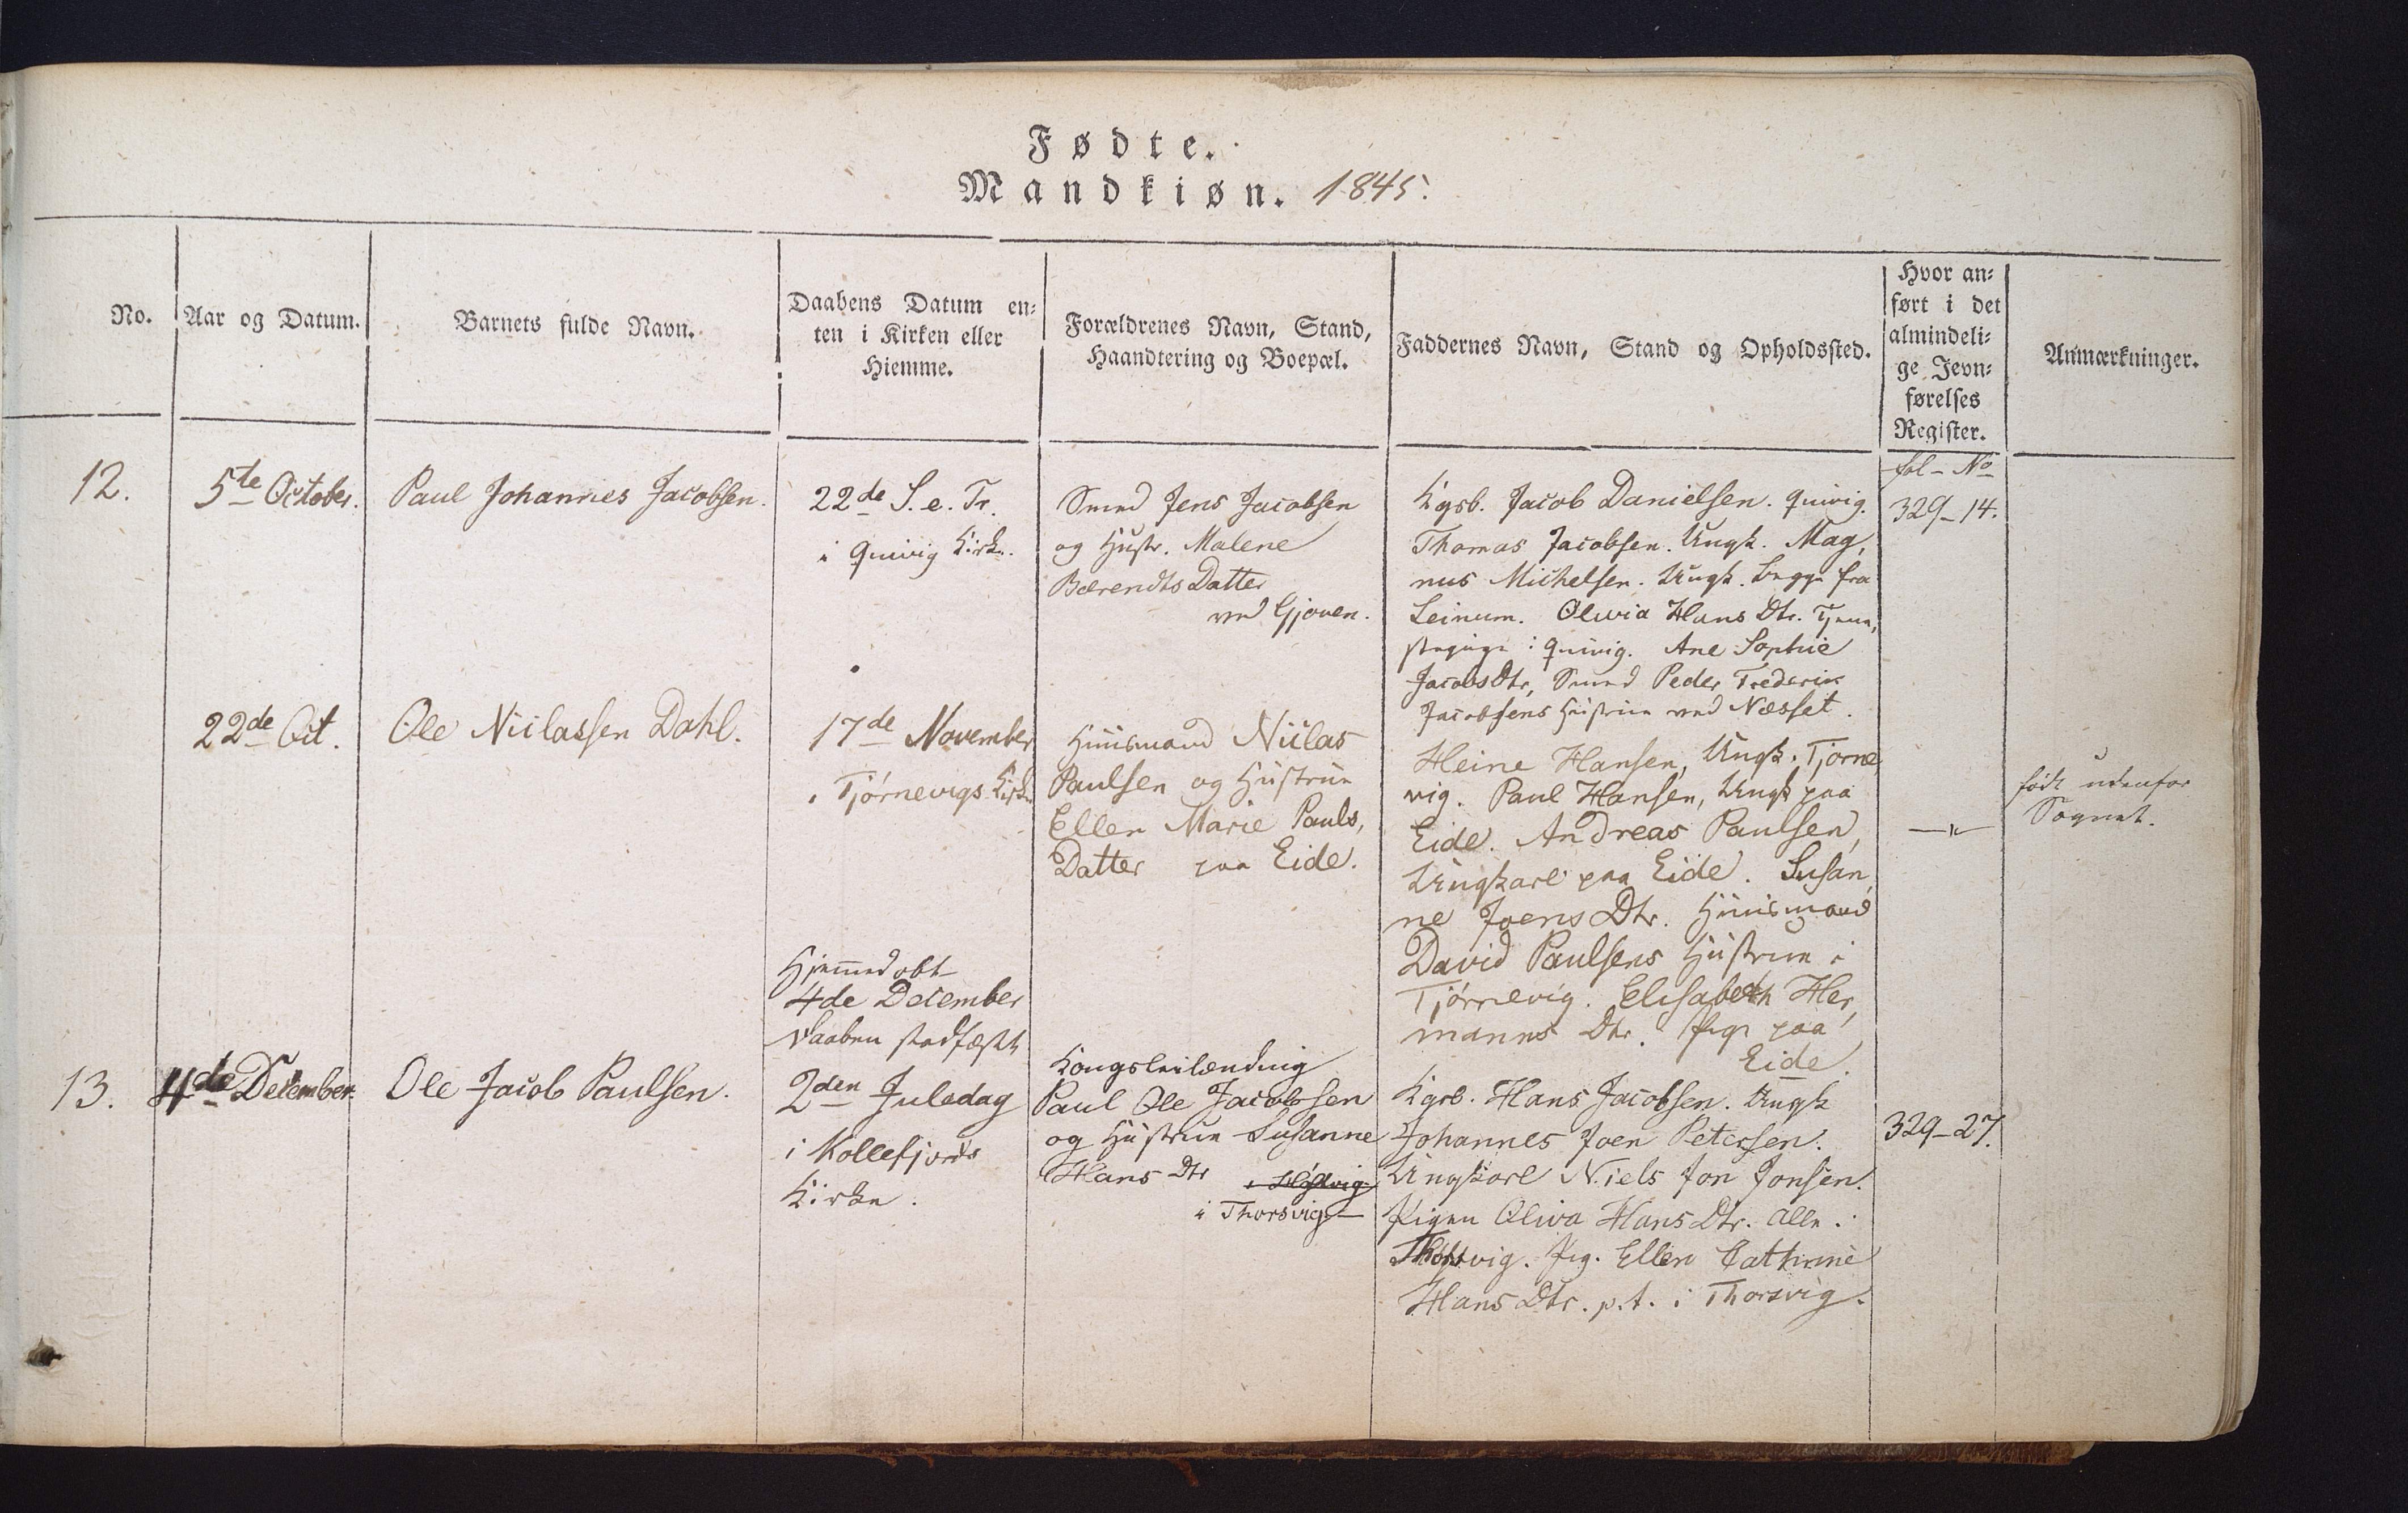 Fødte.
Mandkiøn. 1845.
No.
Aar og Datum.
Barnets fulde Navn.
Daabens Datum en=
ten i Kirken eller
Hiemme.
Forældrenes Navn, Stand,
Haandtering og Boepæl.
Faddernes Navn, Stand og Opholdssted.
Hvor an=
ført i det
almindeli=
ge Jevn=
førelses
Register.
Anmærkninger.
12.
5te October.
Paul Johannes Jacobsen.
22de S. e. Tr.
i Quivig Kirke.
Smed Jens Jacobsen
og Hustr. Malene
Bærendts Datter
ved Gjoven.
Kgsb. Jacob Danielsen. Quivig.
Thomas Jacobsen. Ungk. Mag,
nus Michelsen. Ungk. begge fra
Leinum. Olivia Hans Dtr. Tjene,
stepige i Quivig. Ane Sophie
Jacobs Dtr, Smed Peder Frederik
Jacobsens Hustrue ved Næsset.
fol - No
329-14.
22de Oct.
Ole Niclassen Dahl.
17de November
i Tjørnevigs Kirke
Huusmand Niclas
Paulsen og Hustrue
Ellen Marie Pauls,
Datter paa Eide.
Heine Hansen, Ungk. Tjørne
vig. Paul Hansen, Ungk paa
Eide. Andreas Paulsen,
Ungkarl paa Eide. Susan,
ne Joens Dtr. Huusmand
David Paulsens Hustrue i
Tjørnevig. Elisabeth Her,
manns Dtr. Pige paa
Eide.
—"—
født udenfor
Sognet.
13.
4de December.
Ole Jacob Paulsen.
Hjemmedøbt
4de December
Daaben stadfæstet
2den Juledag
i Kollefjords
Kirke.
Kongsleilænding
Paul Ole Jacobsen
og Hustrue Susanne
Hans Dtr
i Thorsvig —
Kgsb. Hans Jacobsen. Ungk
Johannes Joen Petersen.
Ungkarl Niels Jon Jonsen.
Pigen Oliva Hans Dtr. alle i
Thorsvig. Pig. Ellen Cathrine
Hans Dtr. p.t. i Thorsvig.
329-27.